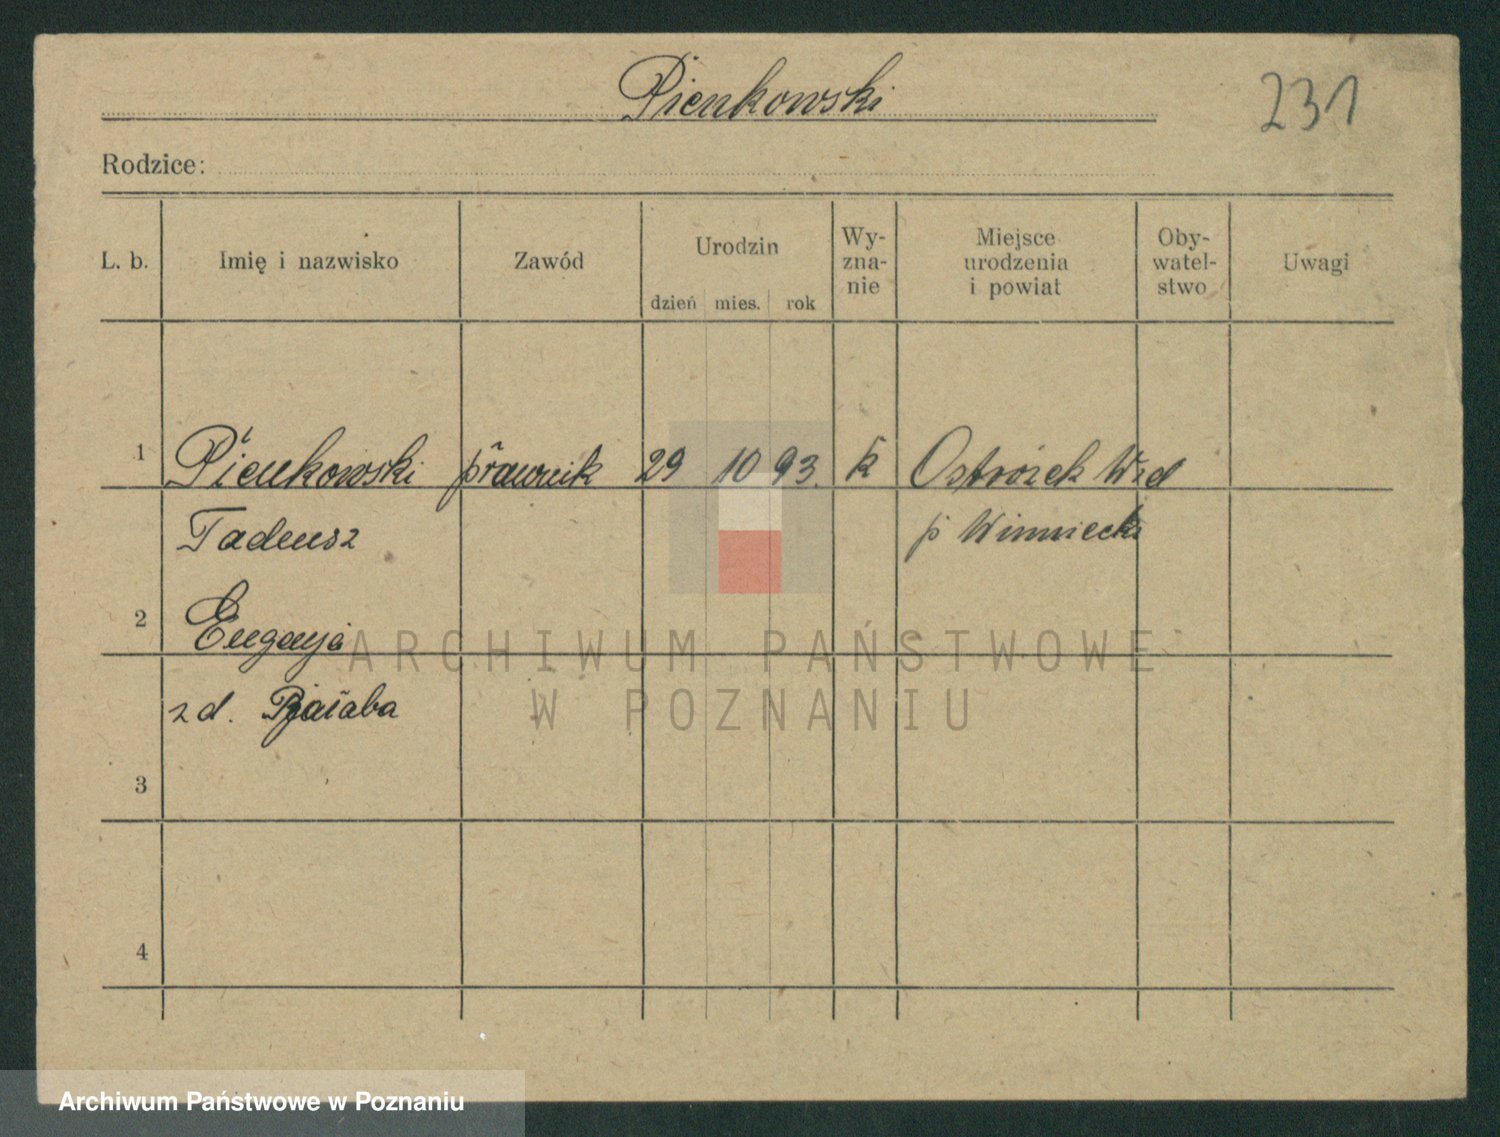 Pienkowski
231
Rodzice:
L. b.
Imię i nazwisko
Zawód
Urodzin
dzień mies. rok
Wy-
zna-
nie
Miejsce
urodzenia
i powiat
Oby-
watel-
stwo
Uwagi
1 Pienkowski prawnik 29 10 93. k Ostrożek Wzd
Tadeusz p Winniecki
2 Eugenja
ARCHIWUM PAŃSTWOWE
z d.
W POZNANIU
3
4
Archiwum Państwowe w Poznaniu